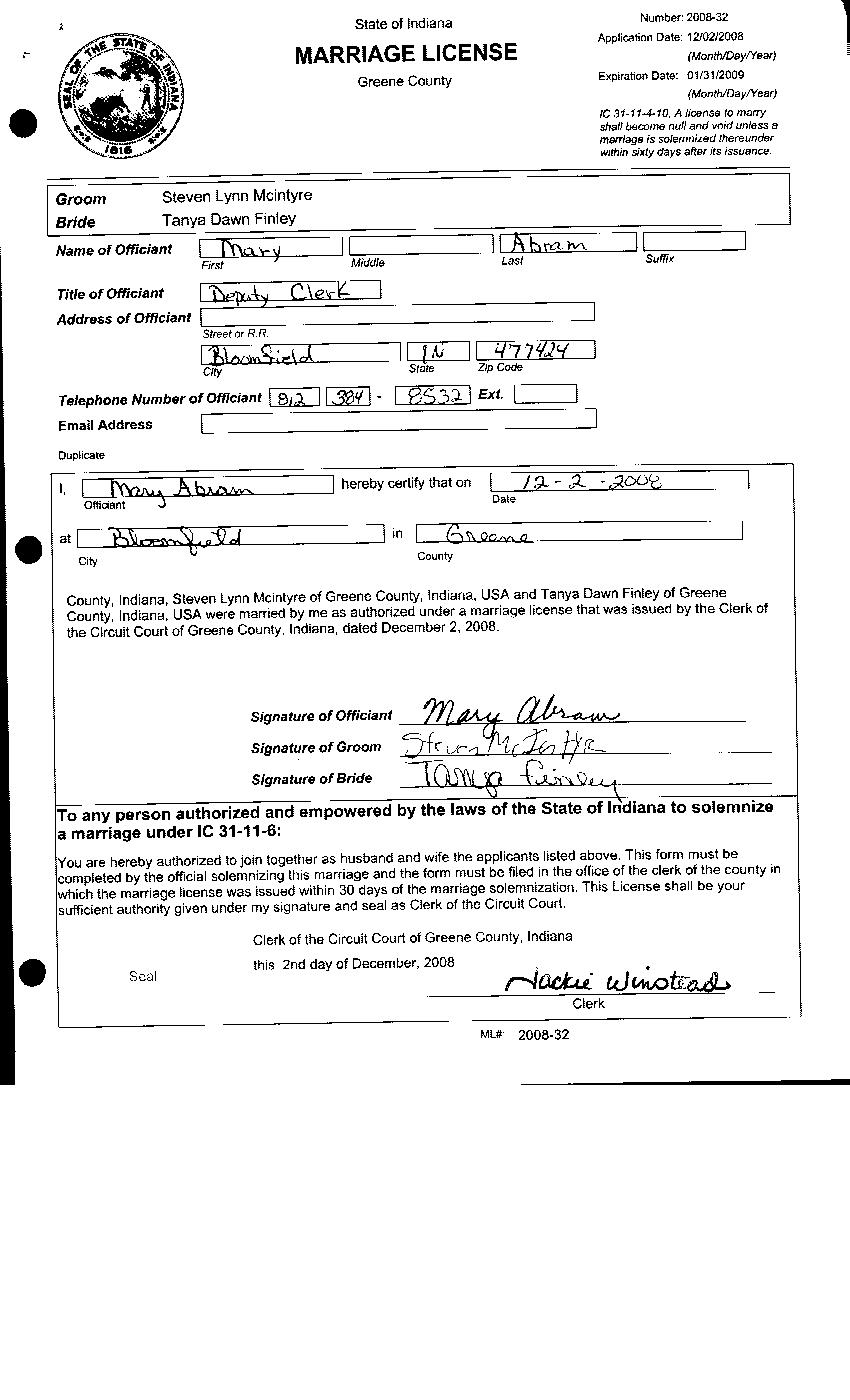 State of Indiana
MARRIAGE LICENSE
Greene County
Number: 2008-32
Application Date: 12/02/2008
(Month/Day/Year)
Expiration Date: 01/31/2009
(Month/Day/Year)
IC 31-11-4-10, A license to marry
shall become null and void unless a
marriage is solemnized thereunder
within sixty days after its issuance.
SEAL OF THE STATE OF INDIANA
1816
Groom Steven Lynn Mcintyre
Bride Tanya Dawn Finley
Name of Officiant Mary Abram
First Middle Last Suffix
Title of Officiant Deputy Clerk
Address of Officiant
Street or R.R.
Bloomfield IN 477424
City State Zip Code
Telephone Number of Officiant 812 384 - 8532 Ext.
Email Address
Duplicate
I, Mary Abram hereby certify that on 12-2-2008
Officiant Date
at Bloomfield in Greene
City County
County, Indiana, Steven Lynn Mcintyre of Greene County, Indiana, USA and Tanya Dawn Finley of Greene
County, Indiana, USA were married by me as authorized under a marriage license that was issued by the Clerk of
the Circuit Court of Greene County, Indiana, dated December 2, 2008.
Signature of Officiant Mary Abram
Signature of Groom Steven McIntyre
Signature of Bride Tanya Finley
To any person authorized and empowered by the laws of the State of Indiana to solemnize
a marriage under IC 31-11-6:
You are hereby authorized to join together as husband and wife the applicants listed above. This form must be
completed by the official solemnizing this marriage and the form must be filed in the office of the clerk of the county in
which the marriage license was issued within 30 days of the marriage solemnization. This License shall be your
sufficient authority given under my signature and seal as Clerk of the Circuit Court.
Clerk of the Circuit Court of Greene County, Indiana
this 2nd day of December, 2008
Seal
Jackie Winstead
Clerk
ML#: 2008-32